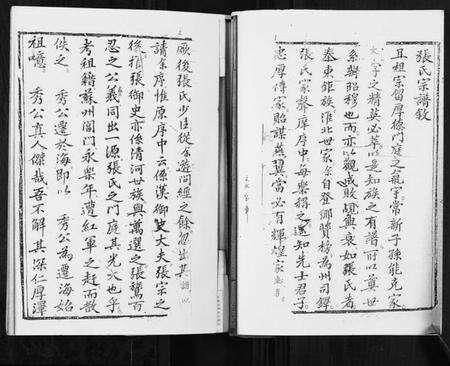 張氏宗譜敘
且祖宗留厚德門庭之氣宇常新子孫能克家
文字之精英必萃以是知族之有譜所以奠世
系辨昭穆也而亦以觀成敗興衰如張氏者
秦東鉅族淮北世家余自登鄉贊榜為州司鐸
張氏家聲庠序中每樂得之逆知先士君子
忠厚傳家貽謀燕翼當必有輝煌家
厥後張氏少臣從余遊問經之餘忽出其譜以
請余序惟原序中云係漢御史大夫張宗之
後指張御史亦係清河世族與萬選之張鷟而
忍之公義同出一源張氏之門庭其光大也乎
考祖籍蘇州閶門永樂年遭紅軍之赶而散
佚之 秀公遷於海即以 秀公為遷海始
祖噫 秀公真人傑哉吾不解其深仁厚澤